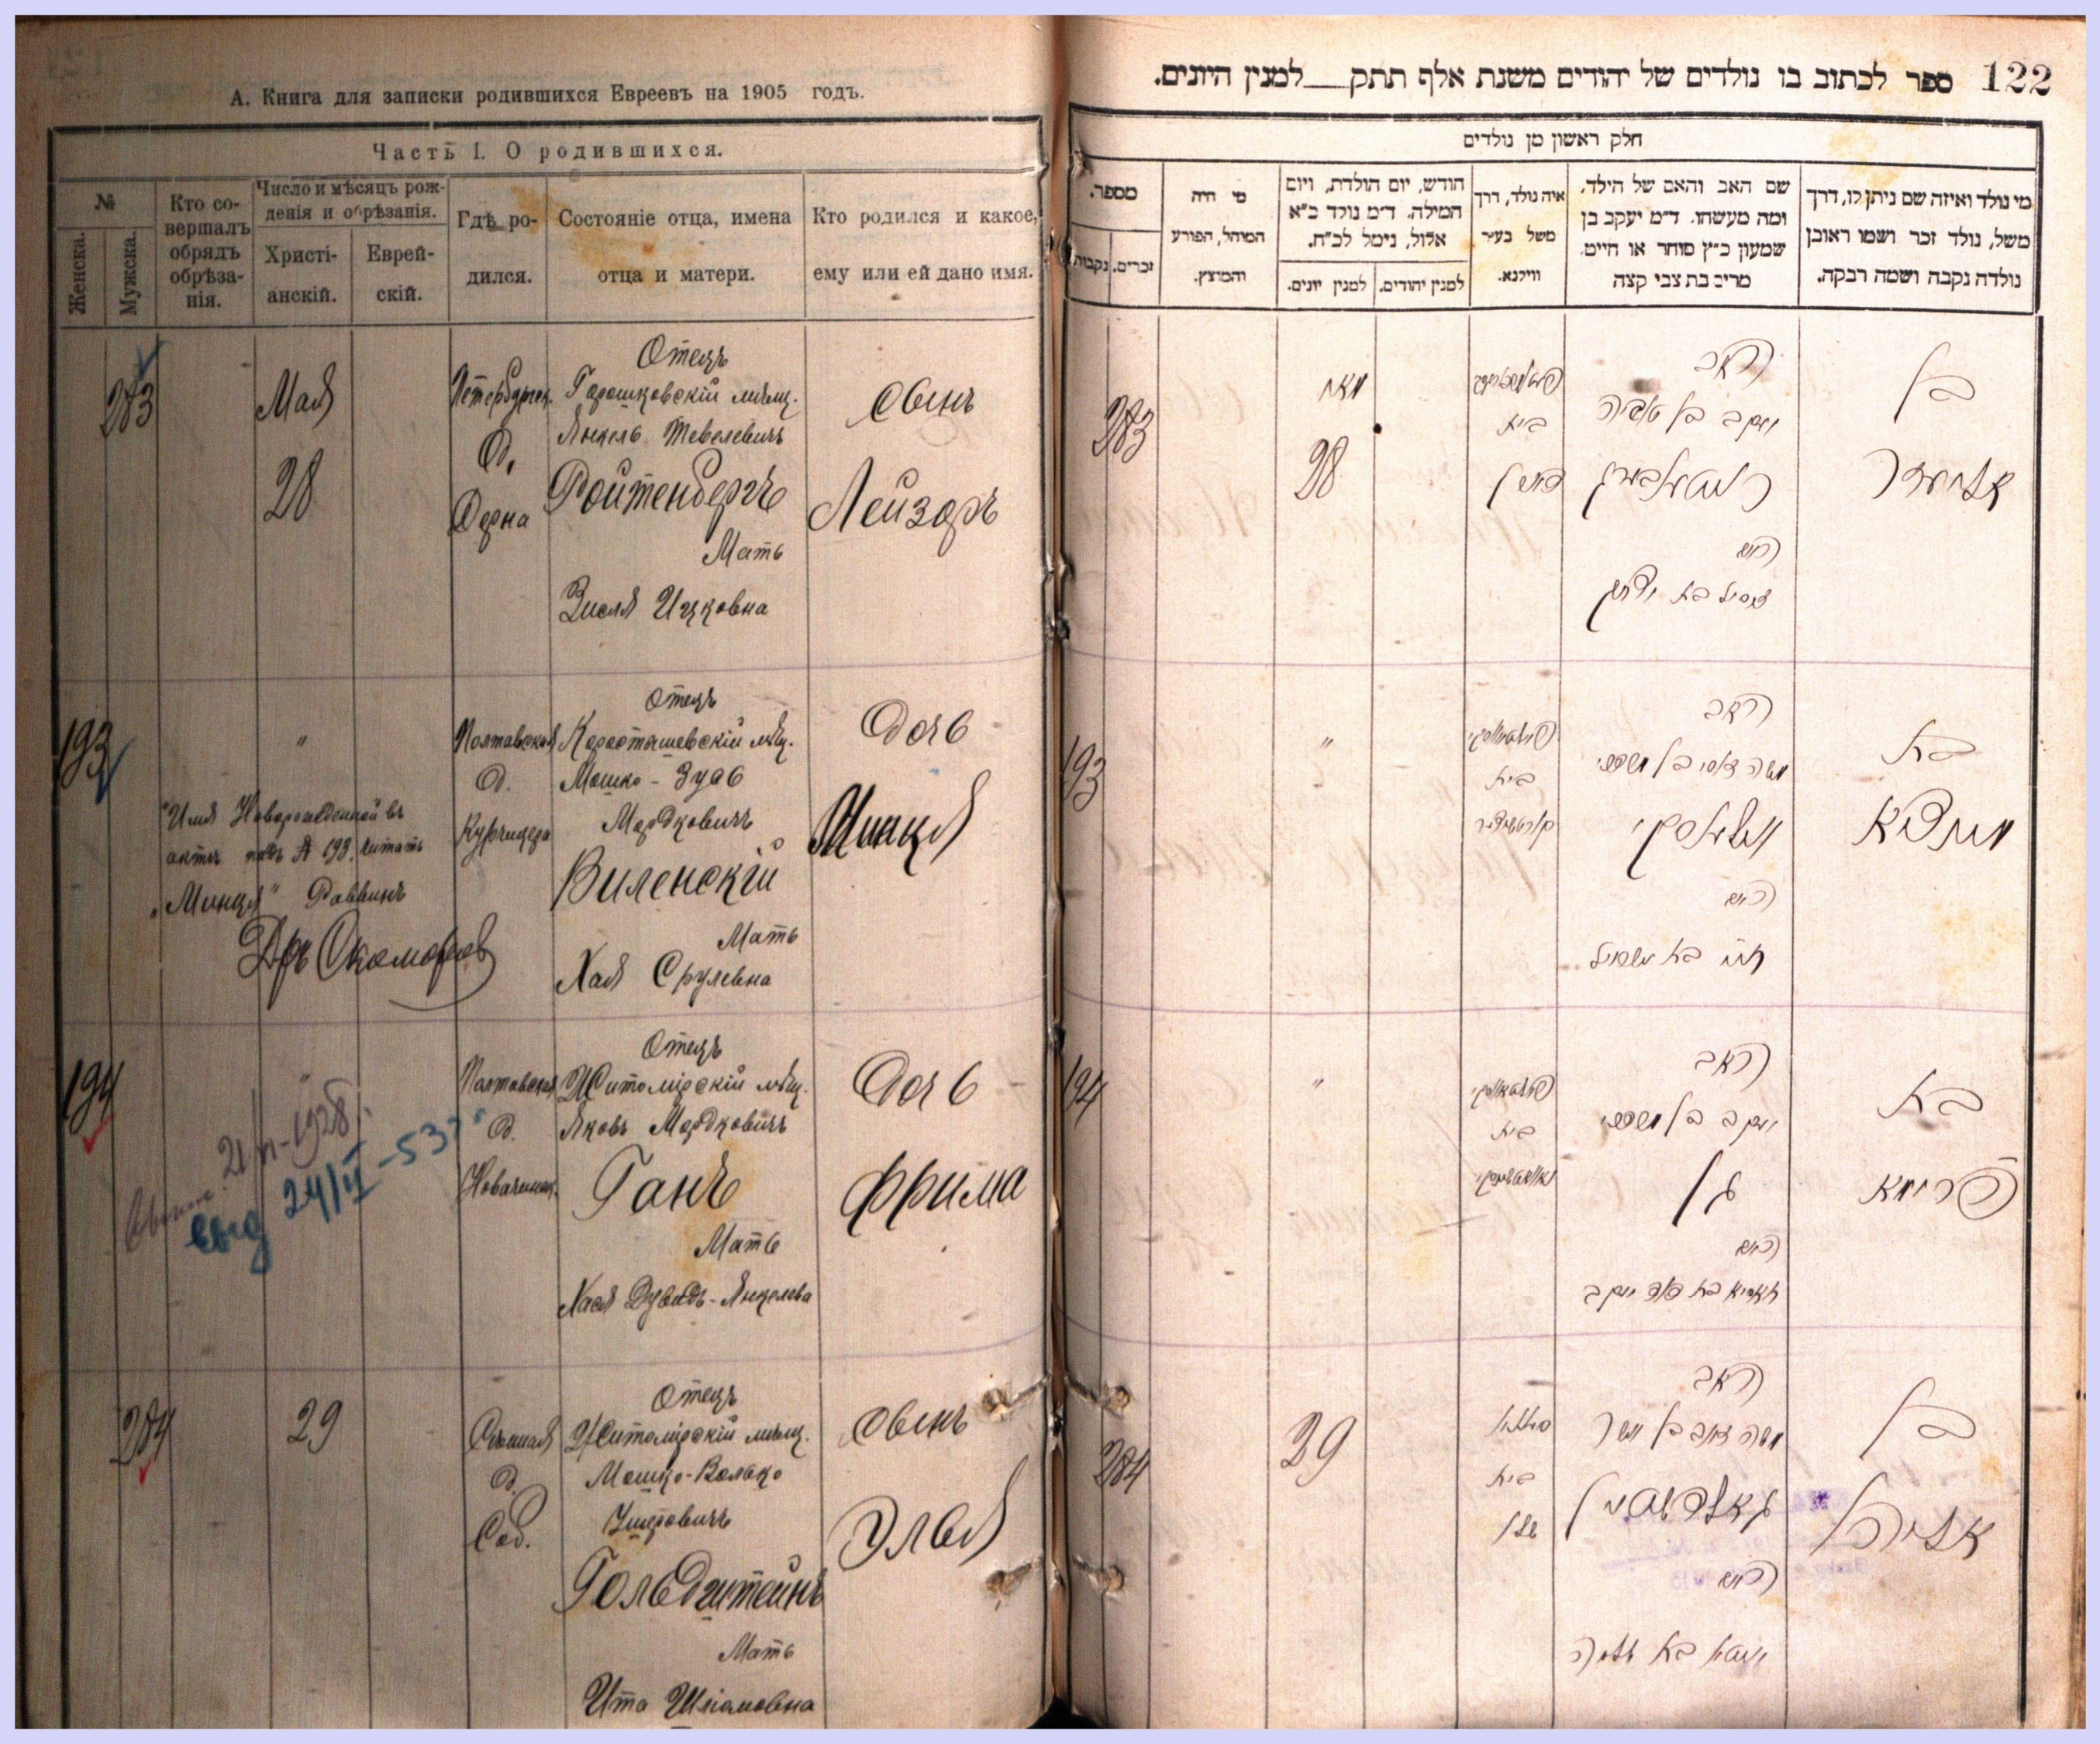 А. Книга для записки родившихся Евреевъ на 1905 годъ.
Часть I. О родившихся.
№
Женска.
Мужска.
Кто со-
вершалъ
обрядъ
обрѣза-
нія.
Число и мѣсяцъ рож-
денія и обрѣзанія.
Христі-
анскій.
Еврей-
скій.
Гдѣ ро-
дился.
Состояніе отца, имена
отца и матери.
Кто родился и какое,
ему или ей дано имя.
283
Мая
28
Петербургск.
д.
Отецъ
Горошковскій мѣщ.
Янкель Тевелевичъ
Ройтенбергъ
Мать
Зисля Ицковна
Сынъ
Лейзоръ
193
"
Полтавская
д.
Отецъ
Коростышевскій мѣщ.
Мошко-Зусь
Мордковичъ
Виленскій
Мать
Хая Срулевна
Дочь
Минця
"Имя Новорожденной въ
актѣ подъ № 193. читать
"Минця" Раввинъ
194
"
21
1928
выд 24/II-53
Полтавская
д.
Отецъ
Житомірскій мѣщ.
Яковъ Мордковичъ
Ганъ
Мать
Хася Дувидъ-Янкелева
Дочь
Фрима
284
29
Сѣнная
д.
Соб.
Отецъ
Житомірскій мѣщ.
Мошко-Волько
Ушеровичъ
Гольдштейнъ
Мать
Ита Шліомовна
Сынъ
Эля
122
ספר לכתוב בו נולדים של יהודים משנת אלף תתק___למנין היונים.
חלק ראשון מן נולדים
מי נולד ואיזה שם ניתן לו, דרך
משל, נולד זכר ושמו ראובן
נולדה נקבה ושמה רבקה.
שם האב והאם של הילד,
ומה מעשהו. ד״מ יעקב בן
שמעון כ״ץ סוחר או חייט.
מרים בת צבי קצה
איה נולד, דרך
משל בעיר
ווילנא.
חודש, יום הולדת, ויום
המילה. ד״מ נולד כ״א
אלול, נימל לכ״ח.
למנין יהודים.
למנין יונים.
מי היה
המוהל, הפורע
והמוצץ.
מספר.
זכרים.
נקבות
בן
אליעזר
האב
יעקב בן טוביה
רויטענבערג
האם
זיסיל בת יצחק
בית
מאי
28
283
בת
מינציא
האב
משה זוסי בן מרדכי
ווילענסקי
האם
חיה בת ישראל
בית
"
193
בת
פרימא
האב
יעקב בן מרדכי
גאן
האם
חאסיא בת דוד יעקב
בית
"
194
בן
אליהו
האב
משה זאב בן אשר
גאלדשטיין
האם
יוטא בת שלמה
בית
29
284